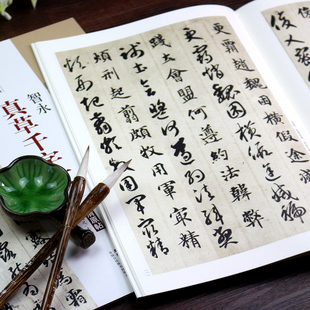 更霸趙魏困橫假途滅虢
更霸趙魏困橫假途滅虢
踐土會盟何遵約法韓弊
踐土會盟何遵約法韓弊
煩刑起翦頗牧用軍最精
煩刑起翦頗牧用軍最精
俊乂密
智永
真草千字